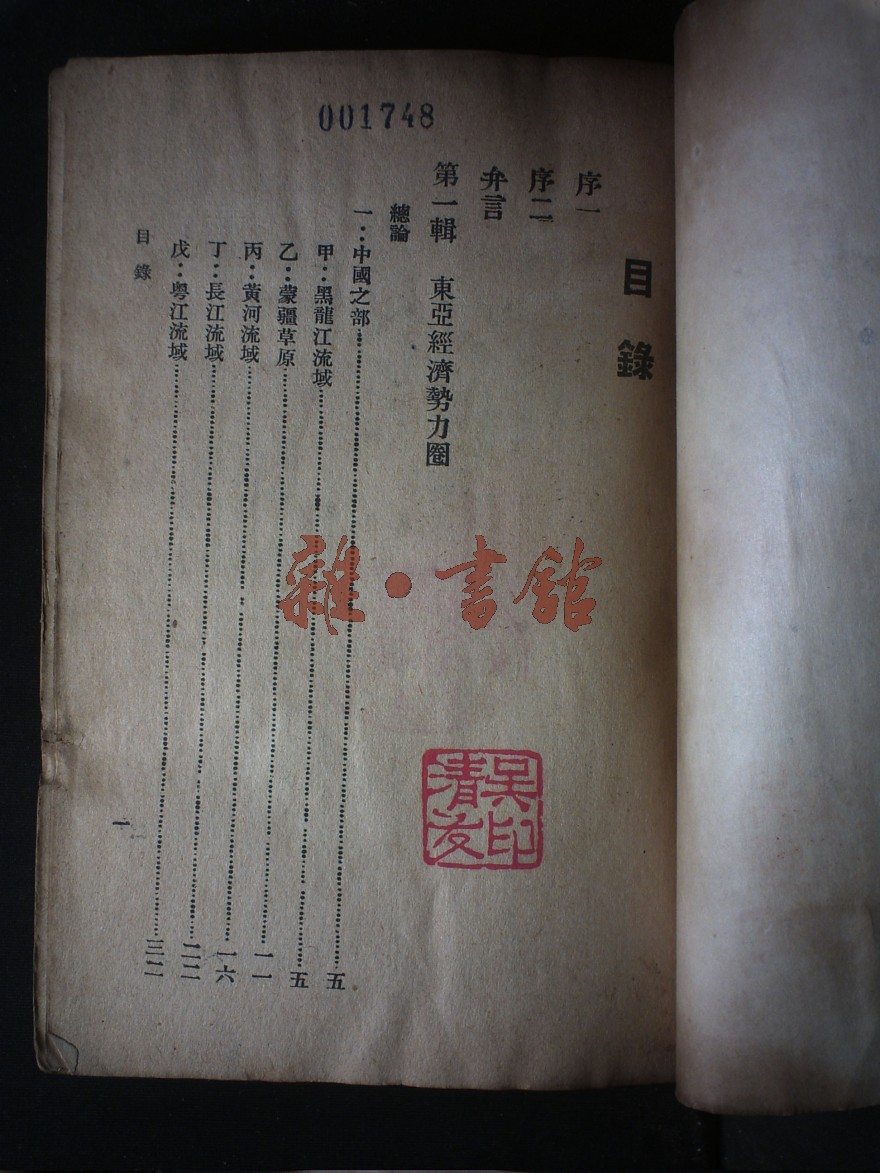 001748
目錄
序一
序二
弁言
第一輯　東亞經濟勢力圈
總論
一：中國之部……五
甲：黑龍江流域……五
乙：蒙疆草原……一一
丙：黃河流域……一六
丁：長江流域……二二
戊：粵江流域……三二
目錄
一
雜·書館
吳印清友